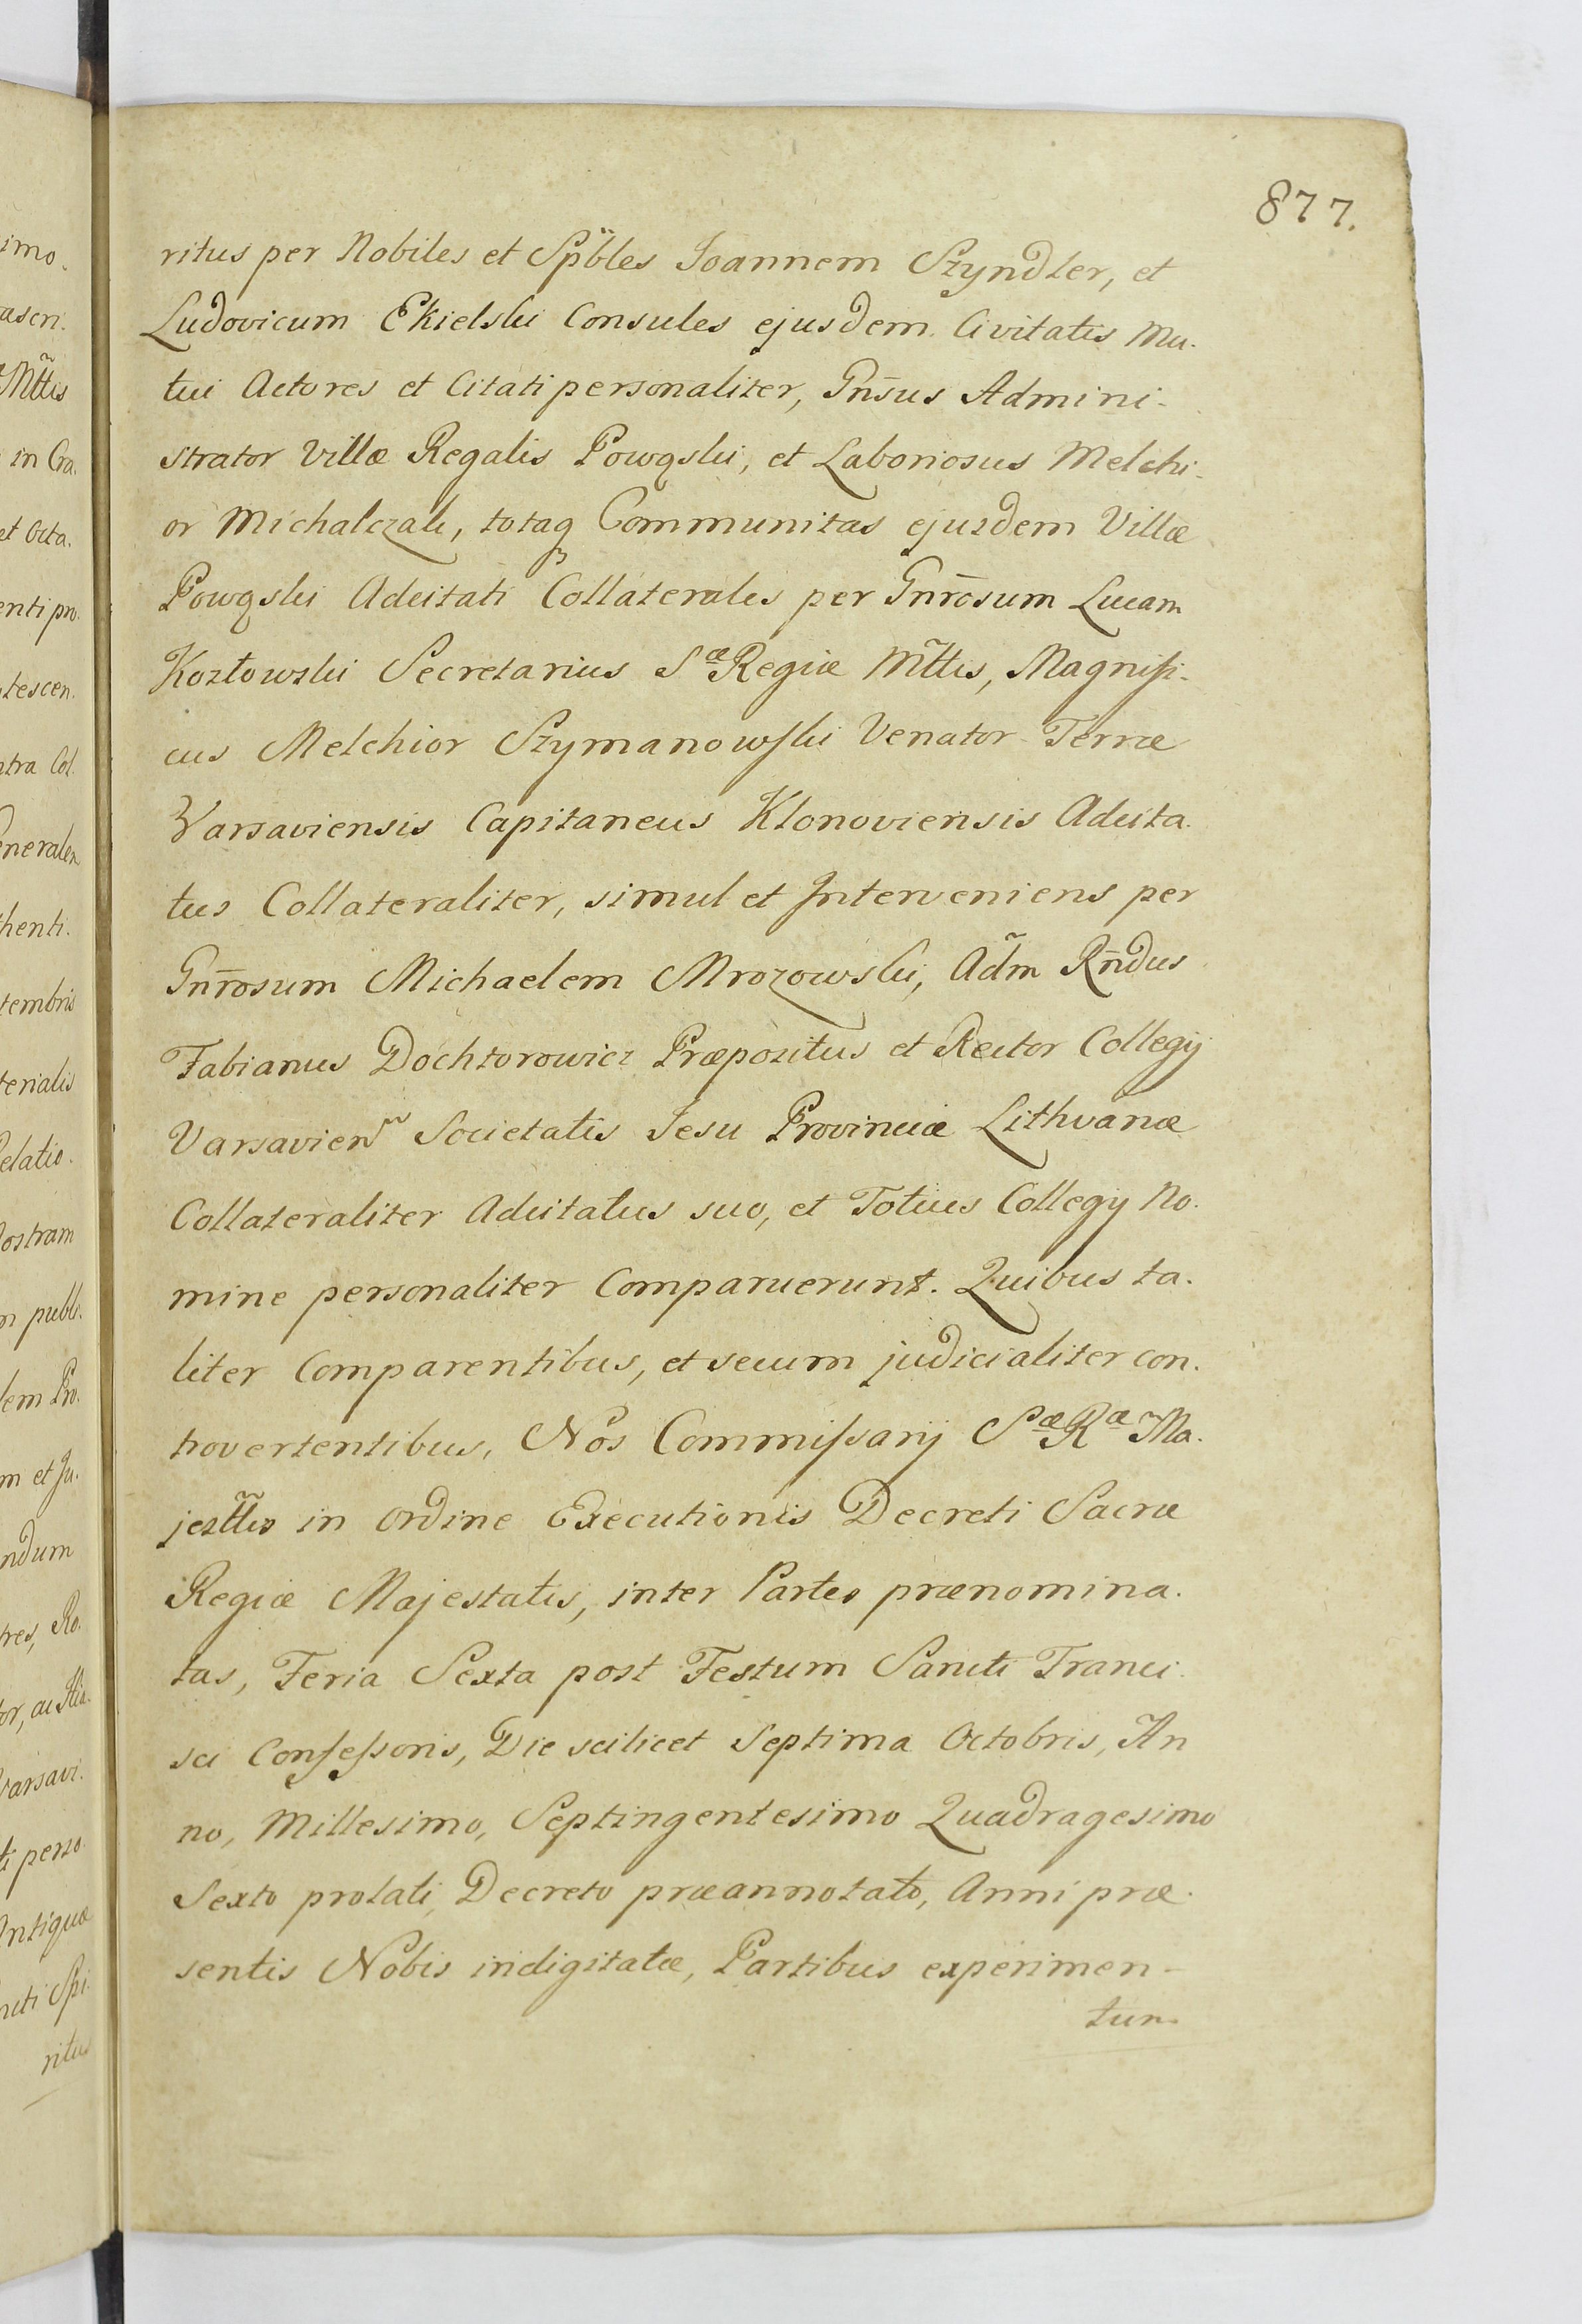 877.
ritus per Nobiles et Spbles Joannem Szyndler, et
Ludovicum Ekielski Consules ejusdem Civitatis Mu-
tui Actores et Citati personaliter, Gnsus Admini-
strator Villæ Regalis Powąski, et Laboriosus Melchi-
or Michalczak, totaq Communitas ejusdem Villæ
Powąski Adcitati Collaterales per Gnrosum Lucam
Kozłowski Secretarius Sæ Regiæ Mttis, Magnifi-
cus Melchior Szymanowski Venator Terræ
Varsaviensis Capitaneus Klonoviensis Adcita-
tus Collateraliter, simul et Interveniens per
Gnrosum Michaelem Mrozowski, Adm Rndus
Fabianus Dochtorowicz Præpositus et Rector Collegÿ
Varsavien Societatis Jesu Provinciæ Lithvanæ
Collateraliter Adcitatus suo, et Totius Collegÿ No-
mine personaliter Comparuerunt. Quibus ta-
liter Comparentibus, et secum judicialiter con-
trovertentibus, Nos Commissarÿ Sæ Ræ Ma-
jesttis in ordine Executionis Decreti Sacræ
Regiæ Majestatis, inter Partes prænomina-
tas, Feria Sexta post Festum Sancti Franci-
sci Confessoris, Die scilicet Septima Octobris, An
no, Millesimo, Septingentesimo Quadragesimo
Sexto prolati, Decreto præannotato, Anni præ-
sentis Nobis indigitatæ, Partibus experimen-
tum